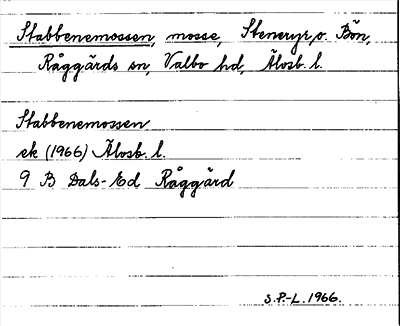 Stabbenemossen, mosse, Steneryr o. Bön,
Råggärds sn, Valbo hd, Älvsb. l.
Stabbenemossen
ek (1966) Älvsb. l.
9 B Dals-Ed Råggärd
S.P.-L. 1966.